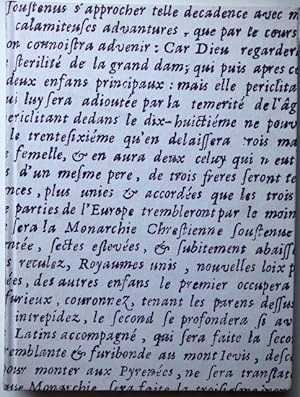 ſouſtenus s'approcher telle decadence avec
calamiteuſes advantures, que par te cours
on connoiſtra advenir: Car Dieu regarder
ſterilité de la grand dam; qui puis apres c
deux enfans principaux: mais elle periclita
ui luy ſera adioutée par la temerité de l'âg
ericlitant dedans le dix-huictiéme ne pourv
le trenteſixiéme qu'en delaiſſera trois ma
e femelle, & en aura deux celuy qui n eut
s d'un meſme pere, de trois freres ſeront te
nces, plus unies & accordées que les trois
e parties de l'Europe trembleront par le moin
e ſera la Monarchie Chreſtienne ſouſtenuë
ntée, ſectes eſlevées, & ſubitement abaiſſ
s reculez, Royaumes unis, nouvelles loix p
ées, des autres enfans le premier occupera
furieux, couronnez, tenant les parens deſſus
intrepidez, le ſecond ſe profondera ſi av
Latins accompagné, qui ſera faite la ſeco
remblante & furibonde au mont Iovis, deſc
pour monter aux Pyrenées, ne ſera tranſlat
que Monarchie, ſera faite la troiſieſme